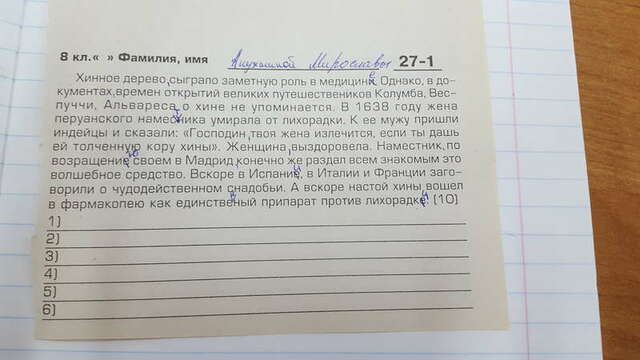 8 кл.« » Фамилия, имя Мирославы 27-1
Хинное дерево, сыграло заметную роль в медицине. Однако, в до-
кументах, времен открытий великих путешествеников Колумба, Вес-
пуччи, Альвареса о хине не упоминается. В 1638 году жена
перуанского намесника умирала от лихорадки. К ее мужу пришли
индейцы и сказали: «Господин, твоя жена излечится, если ты дашь
ей толченную кору хины». Женщина, выздоровела. Наместник, по
возращение своем в Мадрид конечно же раздал всем знакомым это
волшебное средство. Вскоре в Испание, в Италии и Франции заго-
ворили о чудодейственном снадобьи. А вскоре настой хины вошел
в фармакопею как единственый препарат против лихорадке. (10)
1)
2)
3)
4)
5)
6)